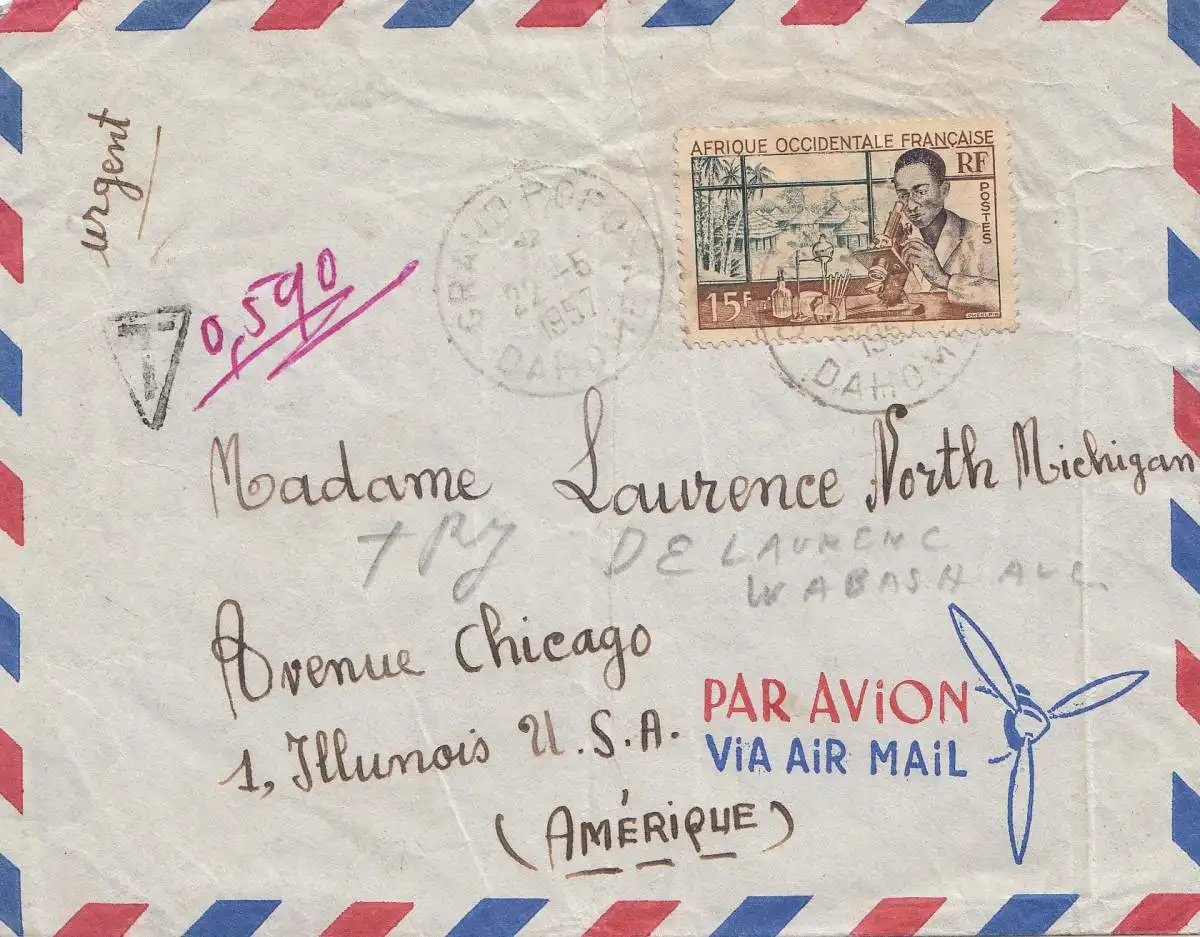 urgent
AFRIQUE OCCIDENTALE FRANÇAISE
RF
POSTES
15F
GRAND POPO
22 -6
1957
DAHOMEY
DAHOMEY
T
0,590
Madame Laurence North Michigan
try DE LAURENC
WABASH AVE.
Avenue Chicago
1, Illunois U.S.A.
(AMÉRIQUE)
PAR AViON
ViA AiR MAiL